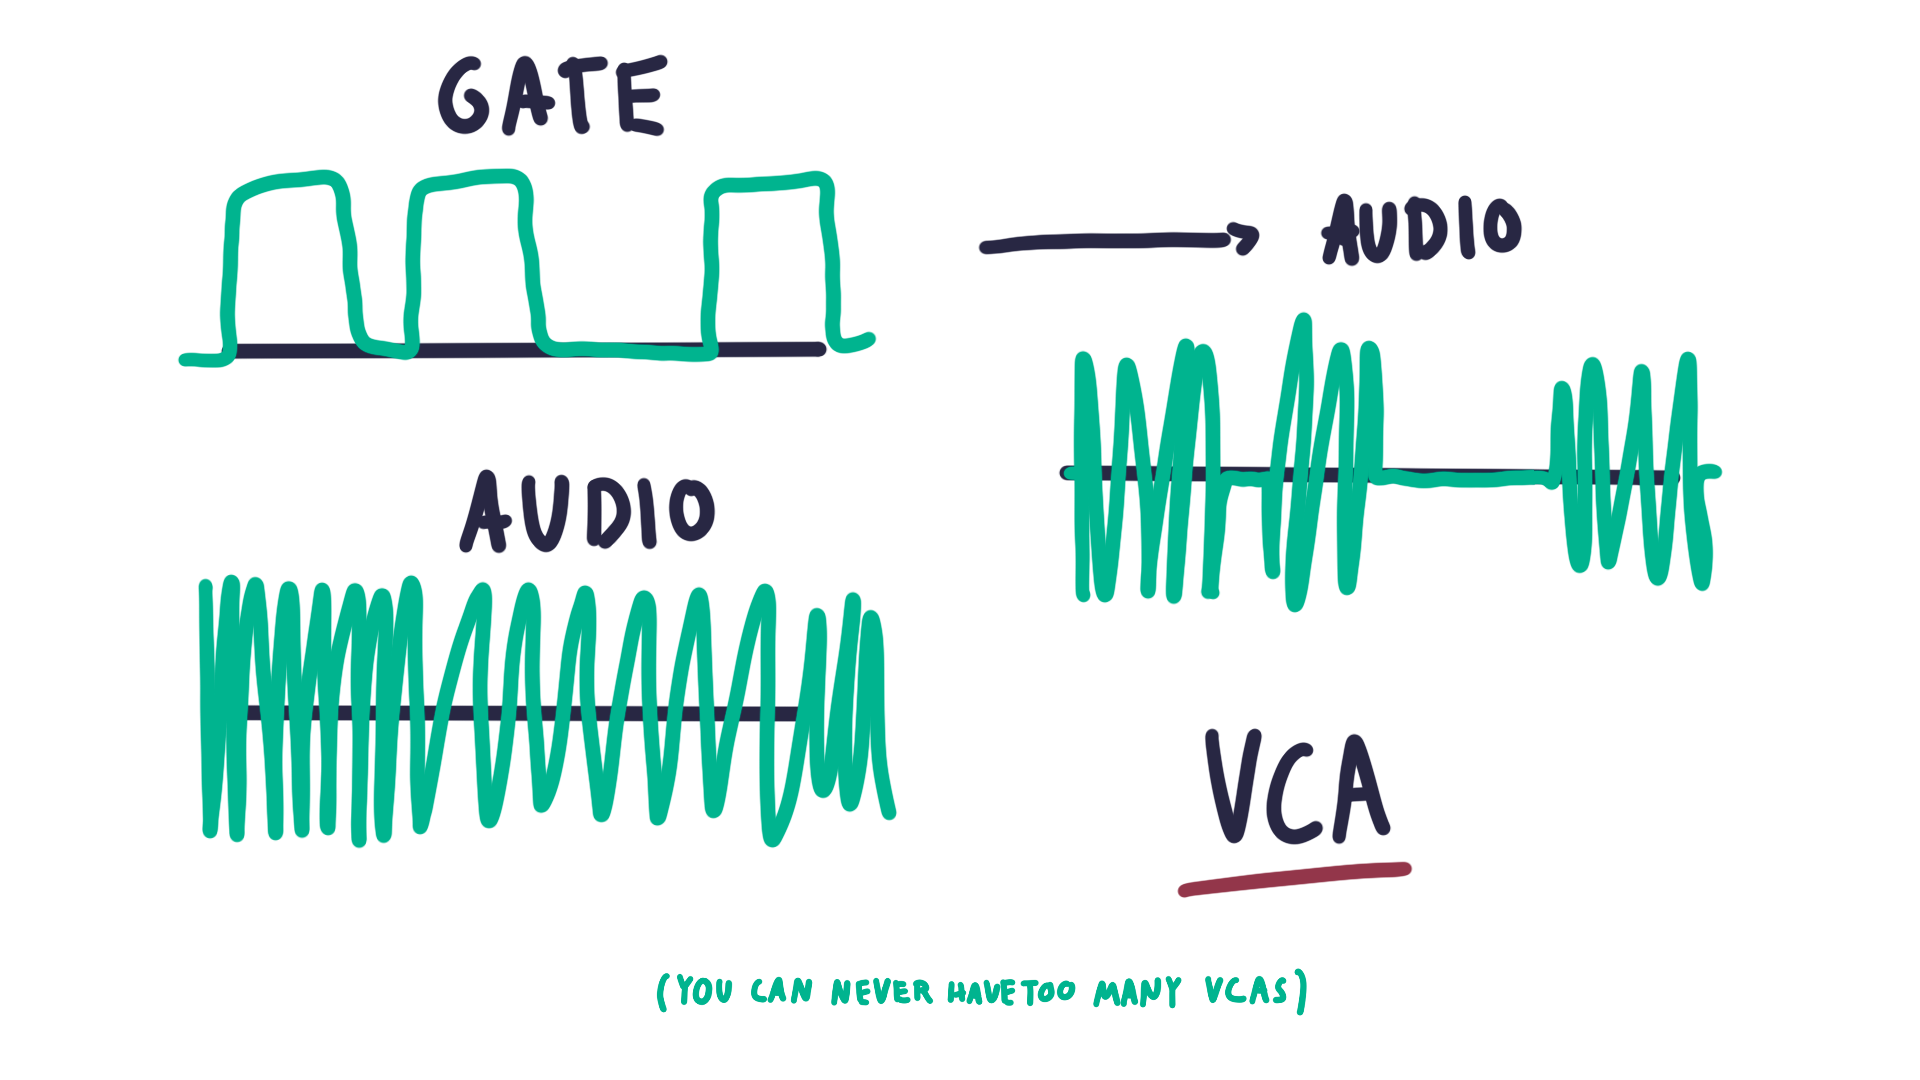 GATE
AUDIO
AUDIO
VCA
(YOU CAN NEVER HAVE TOO MANY VCAS)